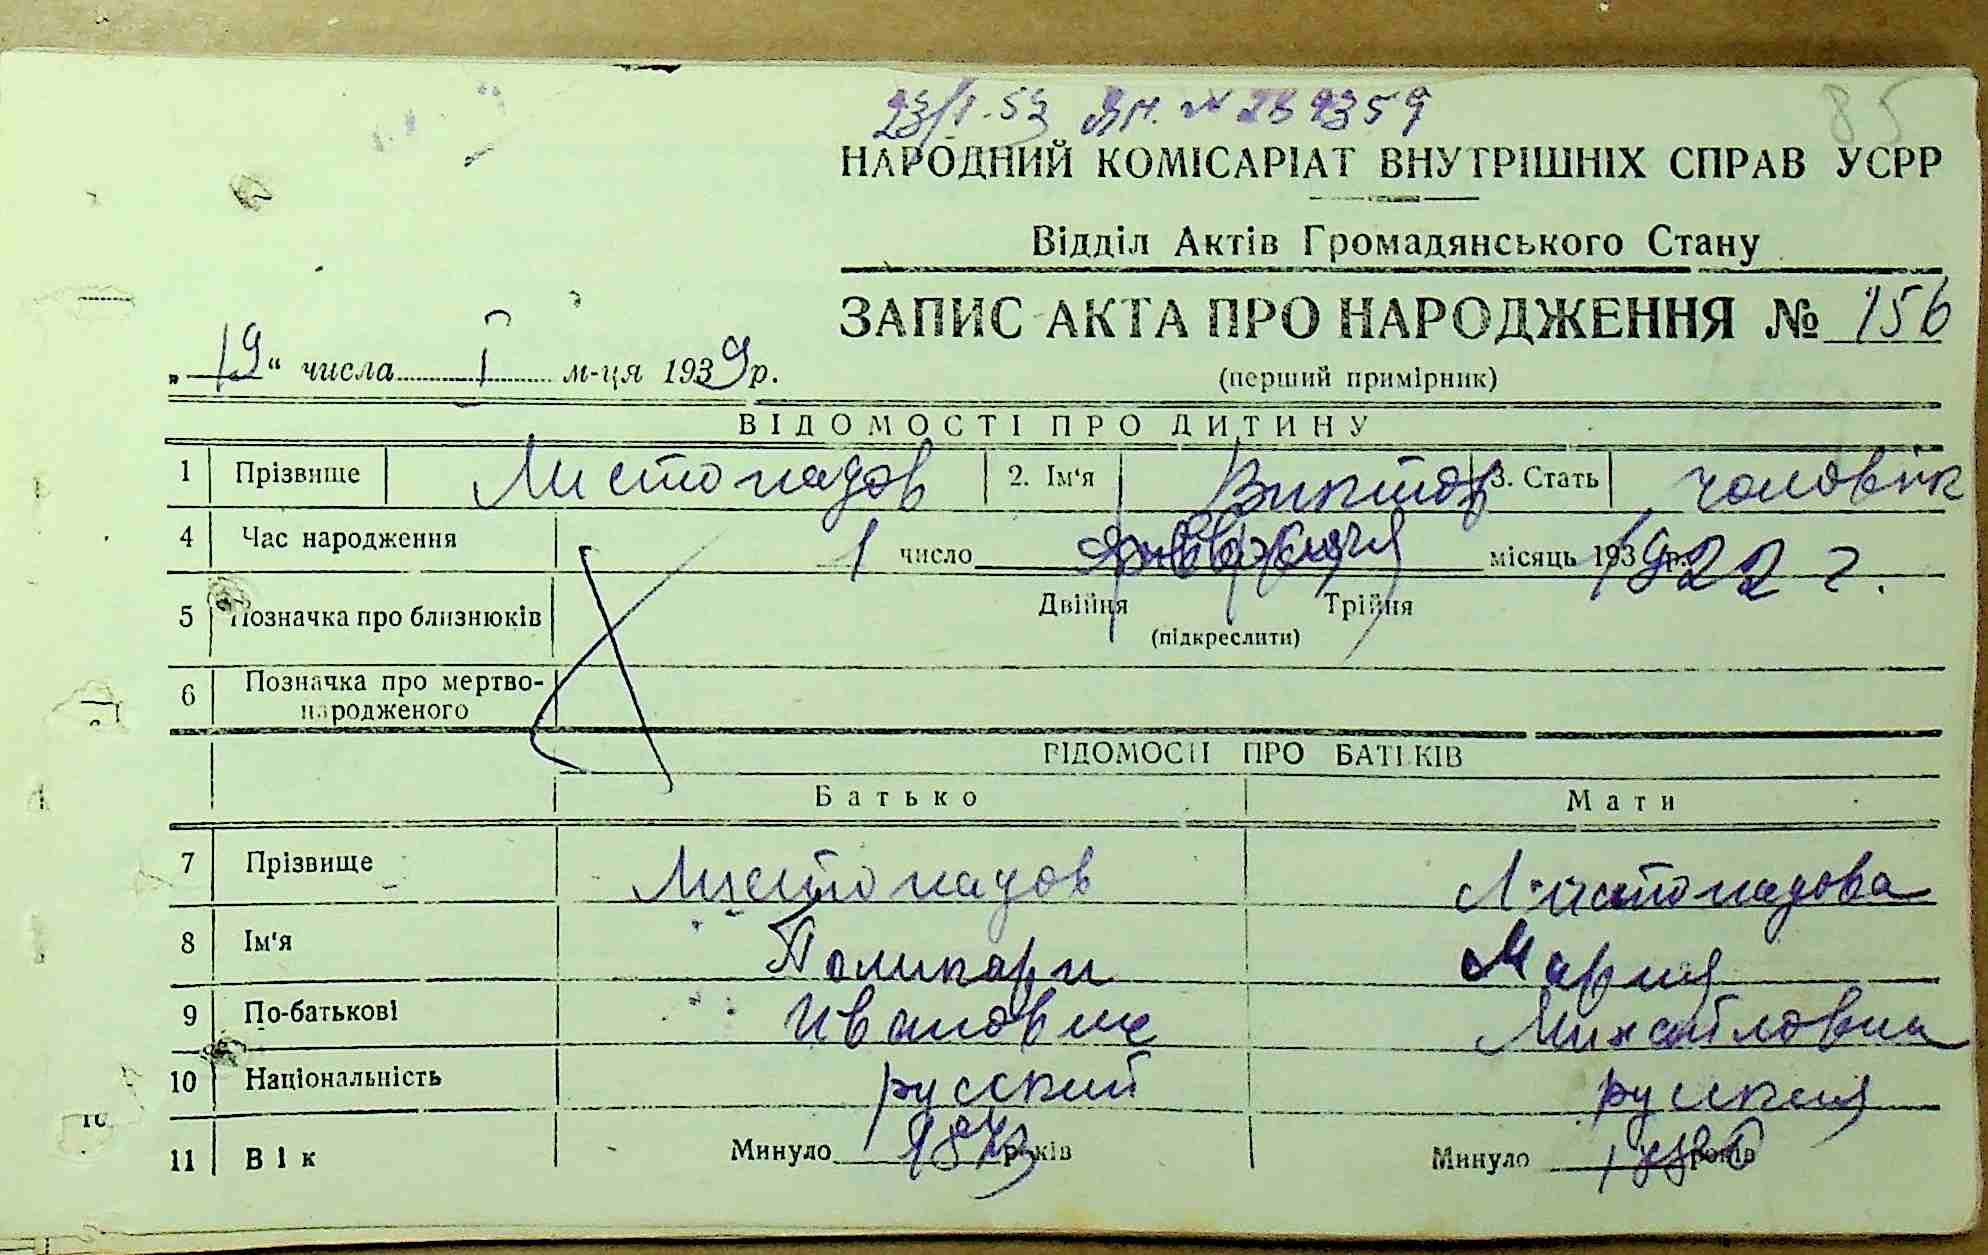 23/I-53 Вм. № 239359
85
НАРОДНИЙ КОМІСАРІАТ ВНУТРІШНІХ СПРАВ УСРР
Відділ Актів Громадянського Стану
ЗАПИС АКТА ПРО НАРОДЖЕННЯ № 156
„ 19 “ числа I м-ця 1939 р.
(перший примірник)
ВІДОМОСТІ ПРО ДИТИНУ
1 Прізвище Листопадов 2. Ім‘я Виктор 3. Стать чоловік
4 Час народження 1 число місяць 193 р. 1922 г.
5 Позначка про близнюків Двійня Трійня
(підкреслити)
6 Позначка про мертво-
народженого
ВІДОМОСТІ ПРО БАТЬКІВ
Батько Мати
7 Прізвище Листопадов Листопадова
8 Ім‘я Поликарп Мария
9 По-батькові Иванович Михайловна
10 Національність русский русская
11 Вік Минуло 1873 років Минуло років